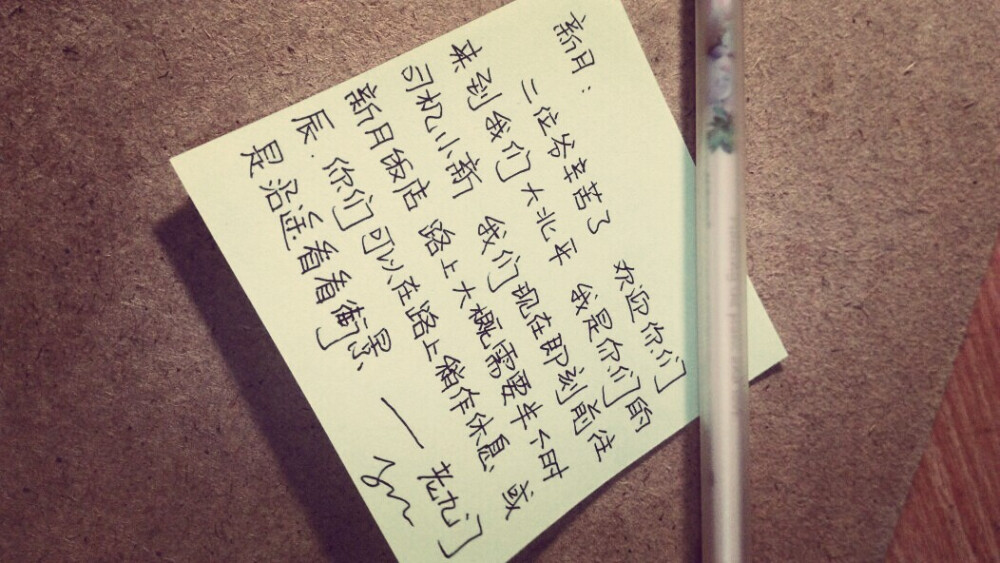 新月：
二位爷辛苦了 欢迎你们
来到我们大北平 我是你们的
司机小新 我们现在即刻前往
新月饭店 路上大概需要半个时
辰.你们可以在路上稍作休息 或
是沿途看看街景、
—老九门